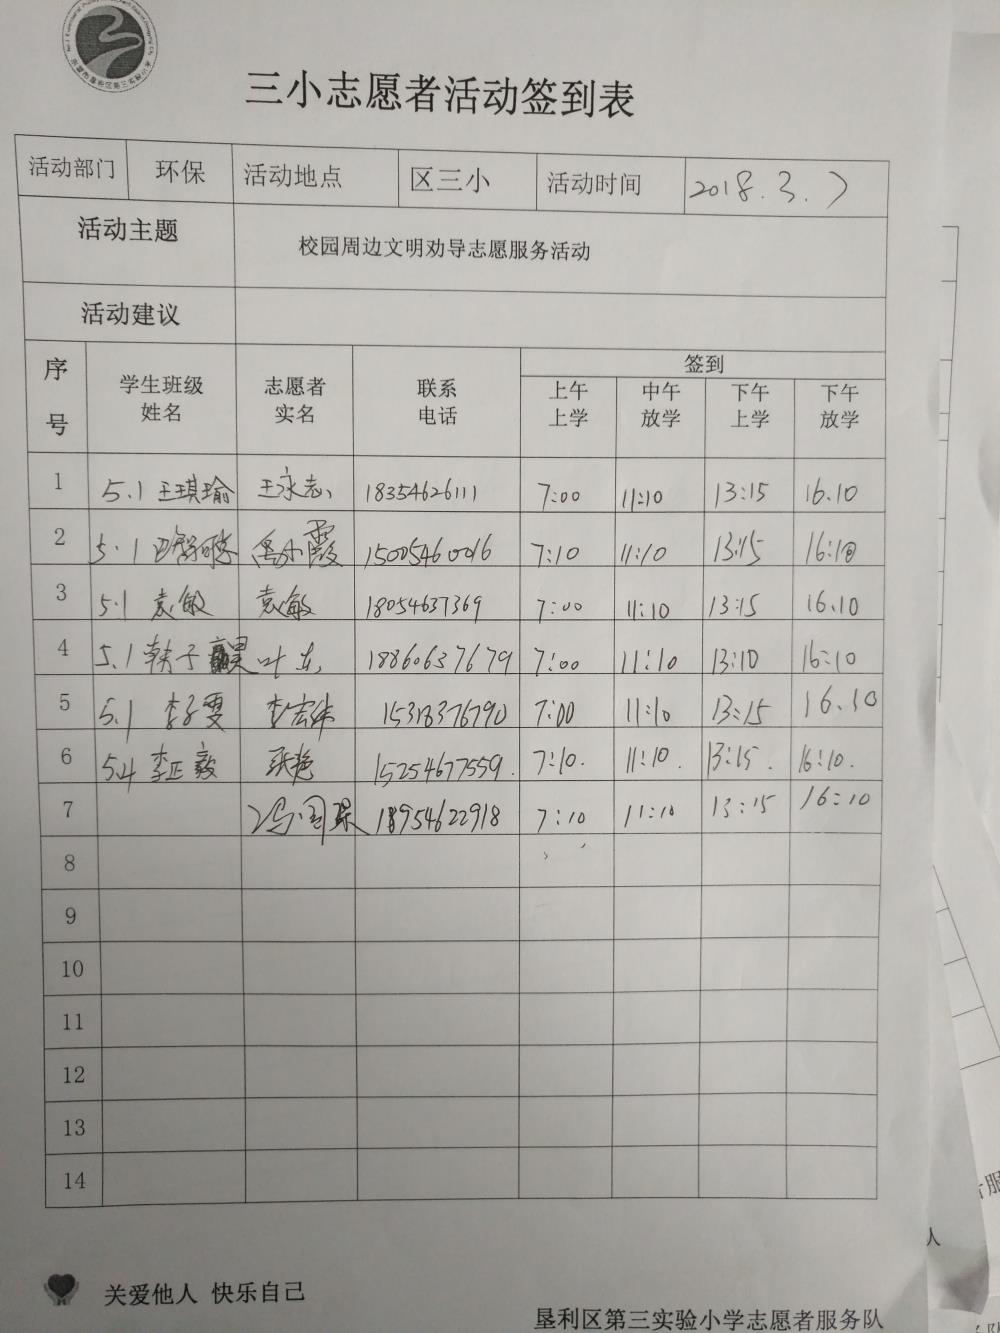 三小志愿者活动签到表
活动部门 环保 活动地点 区三小 活动时间 2018.3.7
活动主题 校园周边文明劝导志愿服务活动
活动建议
序号 学生班级姓名 志愿者实名 联系电话 签到
上午上学 中午放学 下午上学 下午放学
1 5.1 王琪瑜 王永志 18354626111 7:00 11:10 13:15 16.10
2 5.1 15005460016 7:10 11:10 13:15 16:10
3 5.1 袁敏 袁敏 18054637369 7:00 11:10 13:15 16.10
4 5.1 韩子昊 叶东 18860637679 7:00 11:10 13:10 16:10
5 5.1 李子雯 李宏伟 15318376790 7:00 11:10 13:15 16.10
6 5.4 李正毅 张艳 15254677559. 7:10. 11:10. 13:15. 16:10.
7 冯国琛 18954622918 7:10 11:10 13:15 16:10
8
9
10
11
12
13
14
关爱他人 快乐自己
垦利区第三实验小学志愿者服务队